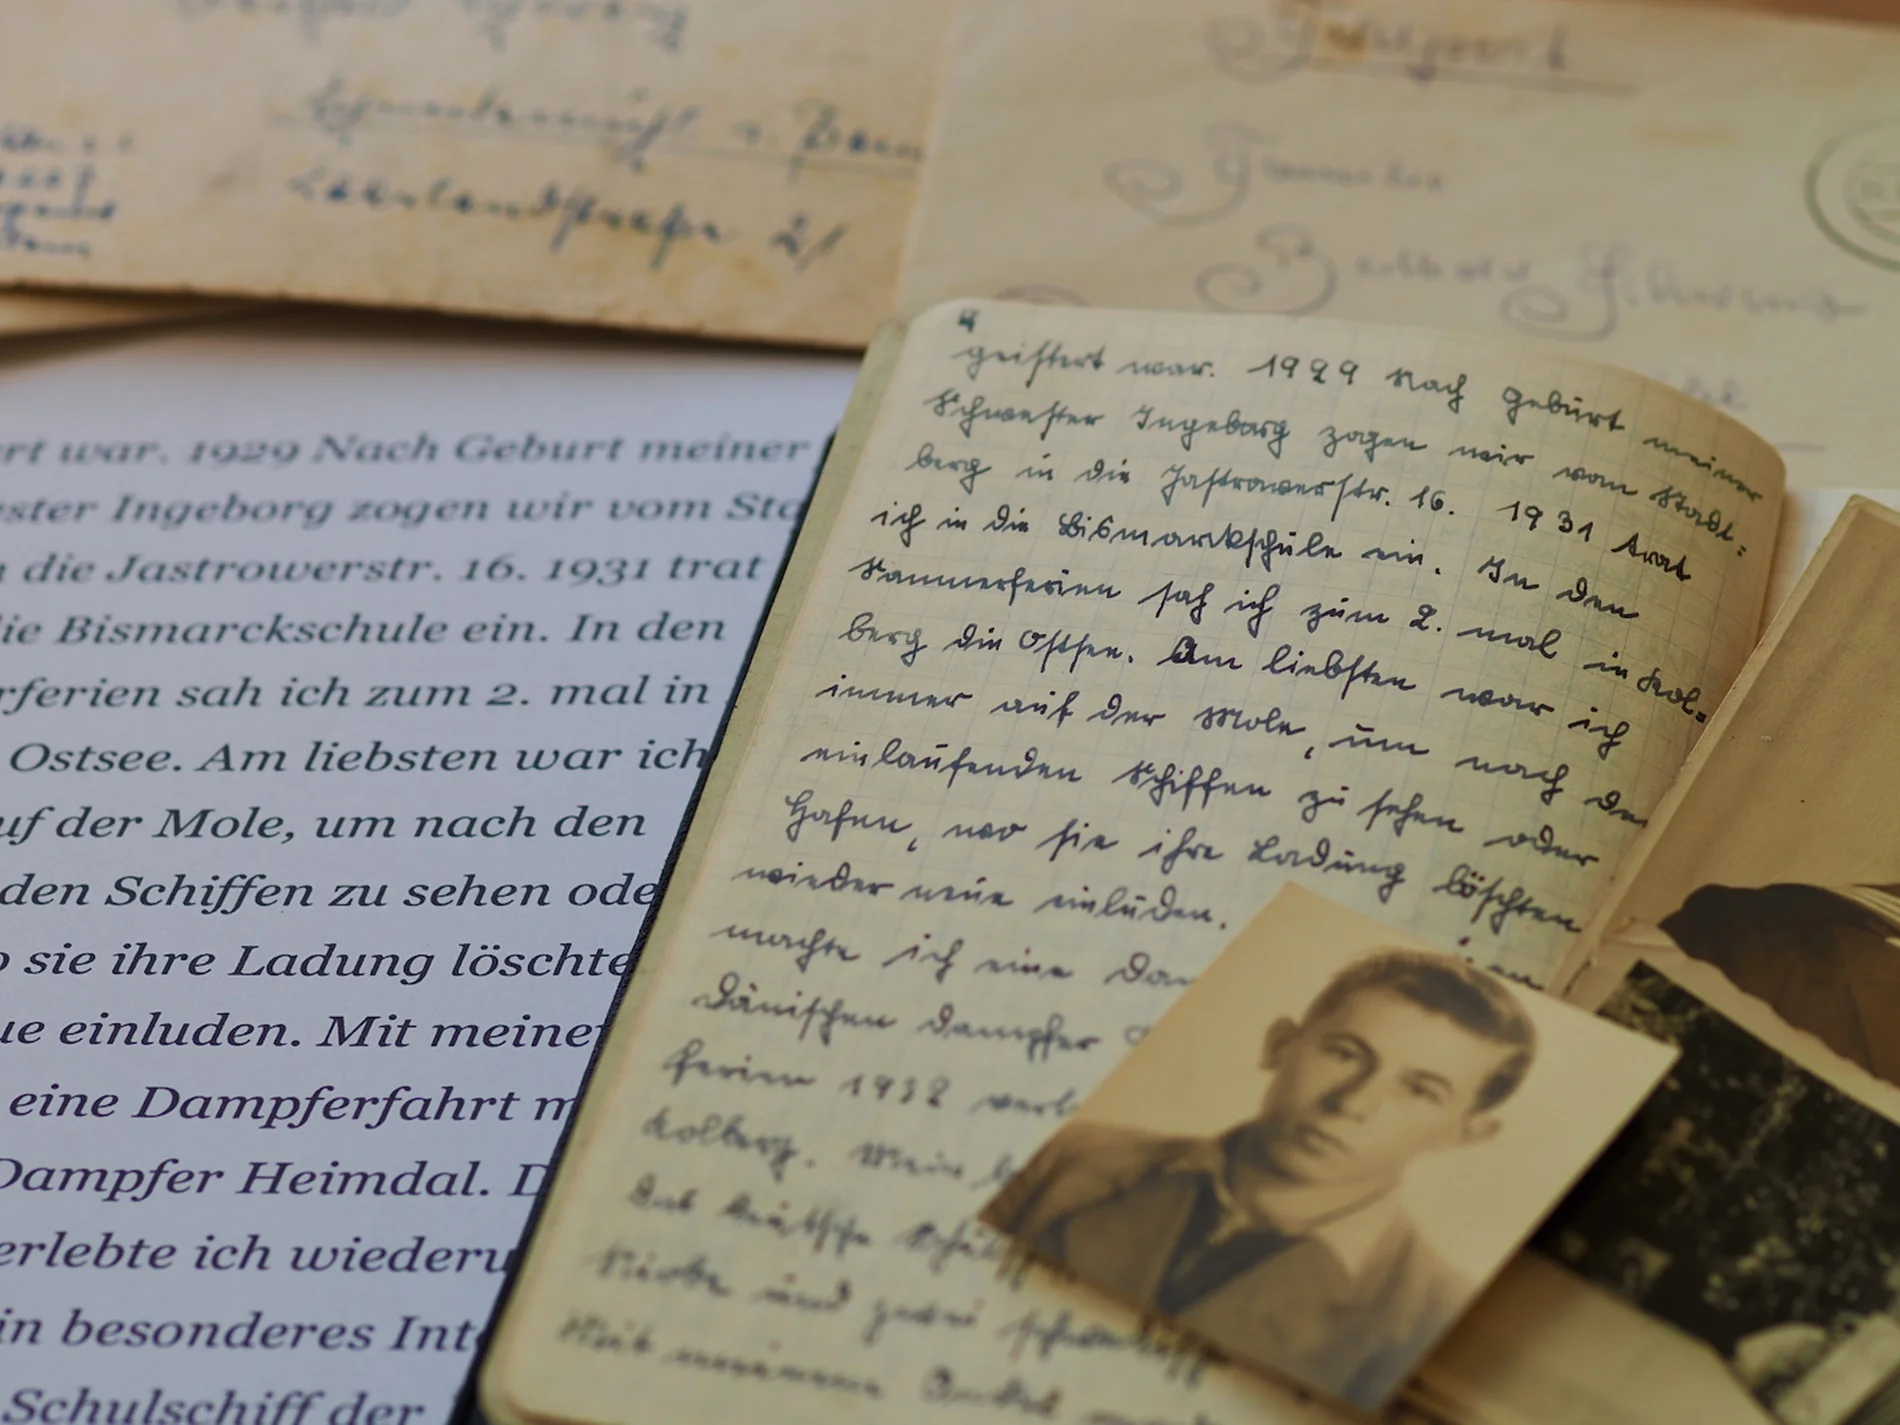 Schneidemühl i. Pom
21
Feldpost
4
geistert war. 1929 Nach Geburt meiner
Schwester Ingeborg zogen wir vom Stadt=
berg in die Jastrowerstr. 16. 1931 trat
ich in die Bismarkschule ein. In den
Sommerferien sah ich zum 2. mal in Kol=
berg die Ostsee. Am liebsten war ich
immer auf der Mole, um nach den
einlaufenden Schiffen zu sehen oder
Hafen, wo sie ihre Ladung löschten
wieder neue einluden.
machte ich eine Dam
Dänischen Dampfer
ferien 1932 verl
Kolberg. Mein b
das deutsche Schulsch
Niobe und zwei
Mit meinem Onkel
rt war. 1929 Nach Geburt meiner
ester Ingeborg zogen wir vom Sta
n die Jastrowerstr. 16. 1931 trat
die Bismarckschule ein. In den
rferien sah ich zum 2. mal in
Ostsee. Am liebsten war ich
uf der Mole, um nach den
den Schiffen zu sehen ode
o sie ihre Ladung löschte
ue einluden. Mit meine
eine Dampferfahrt m
Dampfer Heimdal. D
erlebte ich wiederu
in besonderes Int
Schulschiff der